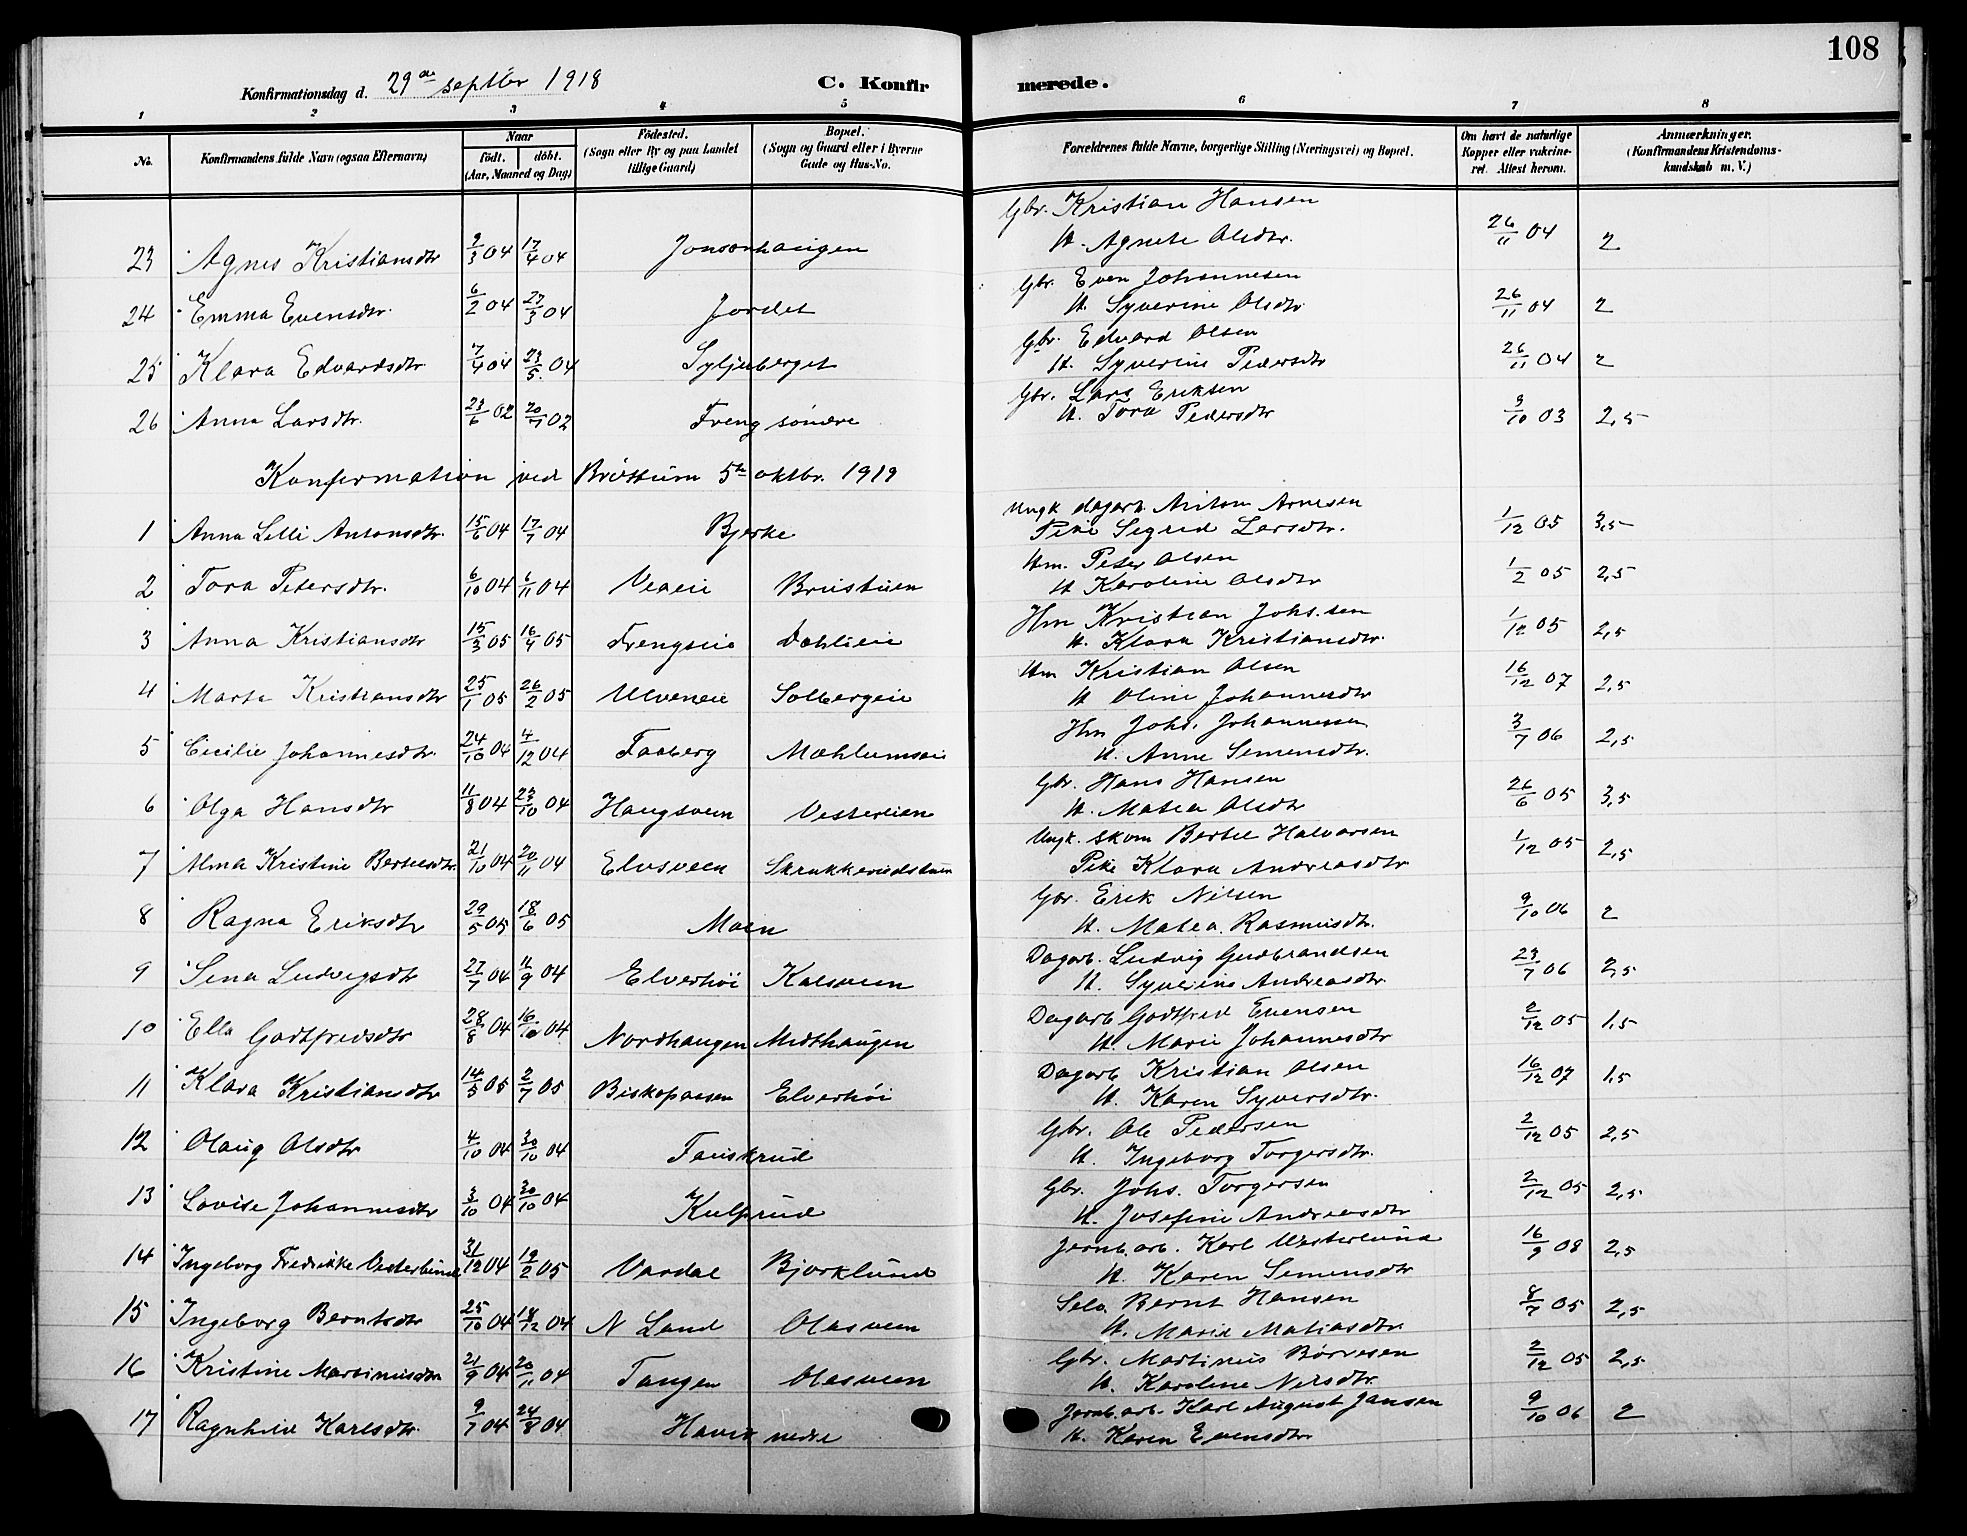 108
Konfirmationsdag d. 29de septbr 1918
C. Konfirmerede.
1 2 3 4 5 6 7 8
No.
Konfirmandens fulde Navn (ogsaa Efternavn)
Naar
födt. döbt.
(Aar, Maaned og Dag)
Födested.
(Sogn eller By og paa Landet
tillige Gaard)
Bopæl.
(Sogn og Gaard eller i Byerne
Gade og Hus-No.
Forældrenes fulde Navne, borgerlige Stilling (Næringsvei) og Bopæl.
Om havt de naturlige
Kopper eller vakcine-
ret. Attest herom.
Anmærkninger.
(Konfirmandens Kristendoms-
kundskab m. V.)
23 Agnes Kristiansdtr 9/3 04 17/4 04 Jonsanhaugen Gbr. Kristian Hansen 26/11 04 2
H. Agnete Olsdtr.
24 Emma Evensdtr. 6/2 04 27/3 04 Jordet Gbr. Even Johannesen 26/11 04 2
H. Syverine Olsdtr
25 Klara Edvardsdtr 7/4 04 23/5 04 Syljuberget Gbr. Edvard Olsen 26/11 04 2
H. Syverine Pedersdtr
26 Anna Larsdtr. 23/6 02 20/7 02 Freng söndre Gbr. Lars Eriksen 9/10 03 2,5
H. Tora Pedersdtr
Konfirmation ved Bröttum 5te oktbr. 1919
1 Anna Lilli Antonsdtr. 15/6 04 17/7 04 Bjerke Ungk dagarb. Anton Arnesen 1/12 05 3,5
Pike Sigrid Larsdtr.
2 Tora Petersdtr. 6/10 04 6/11 04 Veaeie Brustuen Hm. Peter Olsen 1/2 05 2,5
H Karoline Olsdtr
3 Anna Kristiansdtr 15/3 05 16/4 05 Frengseie Dahlieie Hm Kristian Johs.sen 1/12 05 2,5
H. Klara Kristiansdtr.
4 Marta Kristiansdtr 25/1 05 26/2 05 Ulveneie Solbergeie Hm Kristian Olsen 16/12 07 2,5
H Oline Johannesdtr
5 Cecilie Johannesdtr. 24/10 04 4/12 04 Faaberg Mæhlumseie Hm Johs. Johannessen 3/7 06 2,5
H. Anne Simensdtr.
6 Olga Hansdtr 11/8 04 23/10 04 Haugsveen Vesterlien Gbr. Hans Hansen 26/6 05 3,5
H. Matea Olsdtr
7 Alma Kristine Bertelsdtr. 21/10 04 20/11 04 Elvsveen Skrukkerudstuen Ungk. skom Bertel Halvorsen 1/12 05 2,5
Pike Klara Andreasdtr
8 Ragna Eriksdtr 29/5 05 18/6 05 Moen Gbr. Erik Nilsen 9/10 06 2
H. Matea Rasmusdtr.
9 Sena Ludvigsdtr 27/7 04 11/9 04 Elverhöi Kalsveen Dagarb. Ludvig Gudbrandsen 23/7 06 2,5
H. Syverine Andreasdtr.
10 Ella Godtfredsdtr 28/8 04 16/10 04 Nordhaugen Midthaugen Dagarb Godtfred Evensen 2/12 05 1,5
H. Marie Johannesdtr
11 Klara Kristiansdtr 14/5 05 2/7 05 Biskopaasen Elverhöi Dagarb Kristian Olsen 16/12 07 1,5
H. Karen Syversdtr.
12 Olaug Olsdtr 4/10 04 30/10 04 Fauskrud Gbr. Ole Pedersen 2/12 05 2,5
H. Ingeborg Torgersdtr.
13 Lovise Johannesdtr 3/10 04 30/10 04 Kulprud Gbr. Johs. Torgersen 2/12 05 2,5
H. Josefine Andreasdtr
14 Ingeborg Fredrikke Vesterlund 31/12 04 19/2 05 Vardal Bjorklund Jernb.arb. Karl Westerlund 16/9 08 2,5
H. Karen Simensdtr
15 Ingeborg Berntsdtr 25/10 04 18/12 04 N Land Olasveen Selv. Bernt Hansen 8/7 05 2,5
H. Marie Matiasdtr.
16 Kristine Martinusdtr 21/9 04 20/11 04 Tangen Olasveen Gbr. Martinus Börresen 2/12 05 2,5
H. Karoline Nilsdtr.
17 Ragnhild Karlsdtr. 9/7 04 24/8 04 Havik nedre Jernb.arb. Karl August Jansen 9/10 06 2
H. Karen Evensdtr